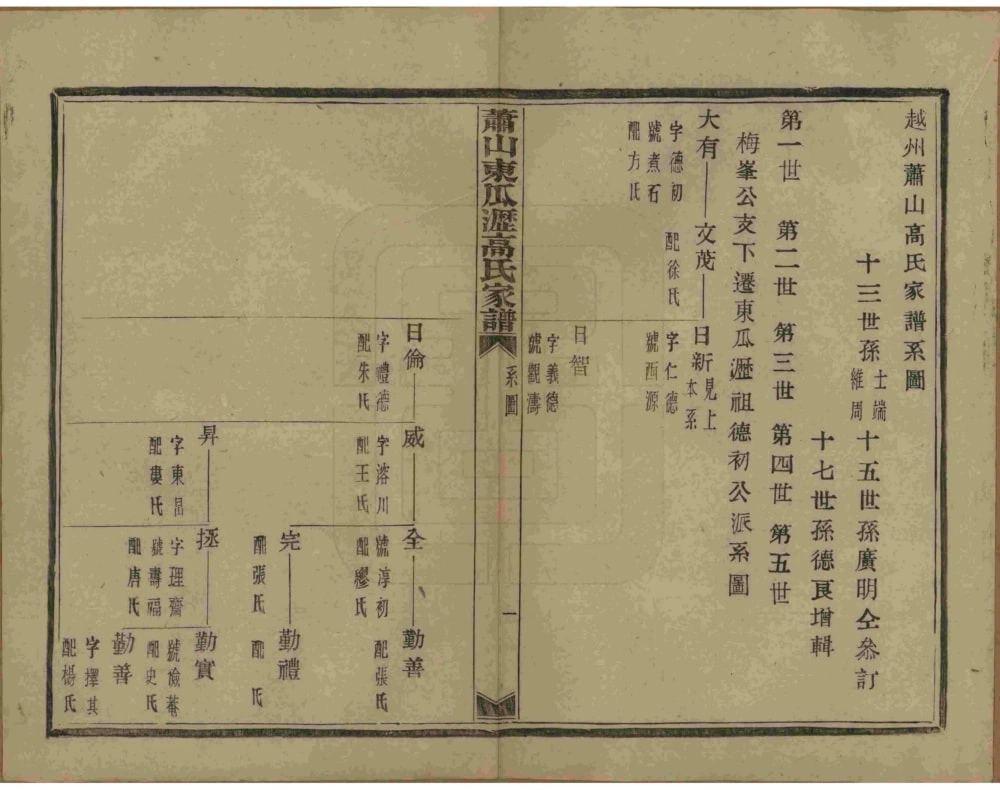 越州蕭山高氏家譜系圖
十三世孫士端維周十五世孫廣明仝叅訂
十七世孫德良增輯
第一世 第二世 第三世 第四世 第五世
梅峯公支下遷東瓜瀝祖德初公派系圖
大有 文茂 日新 見上本系
字德初 配徐氏 字仁德
號煮石 號西源
配方氏
日智
字義德
號觀濤
蕭山東瓜瀝高氏家譜 系圖 一
日倫 威 仝 勤善
字禮德 字溶川 號淳初 配張氏
配朱氏 配王氏 配繆氏
完 勤禮
配張氏 配 氏
昇 拯 勤實
字東昌 字理齋 號儉菴
配婁氏 號壽福 配史氏
配唐氏 勤善
字擇其
配楊氏